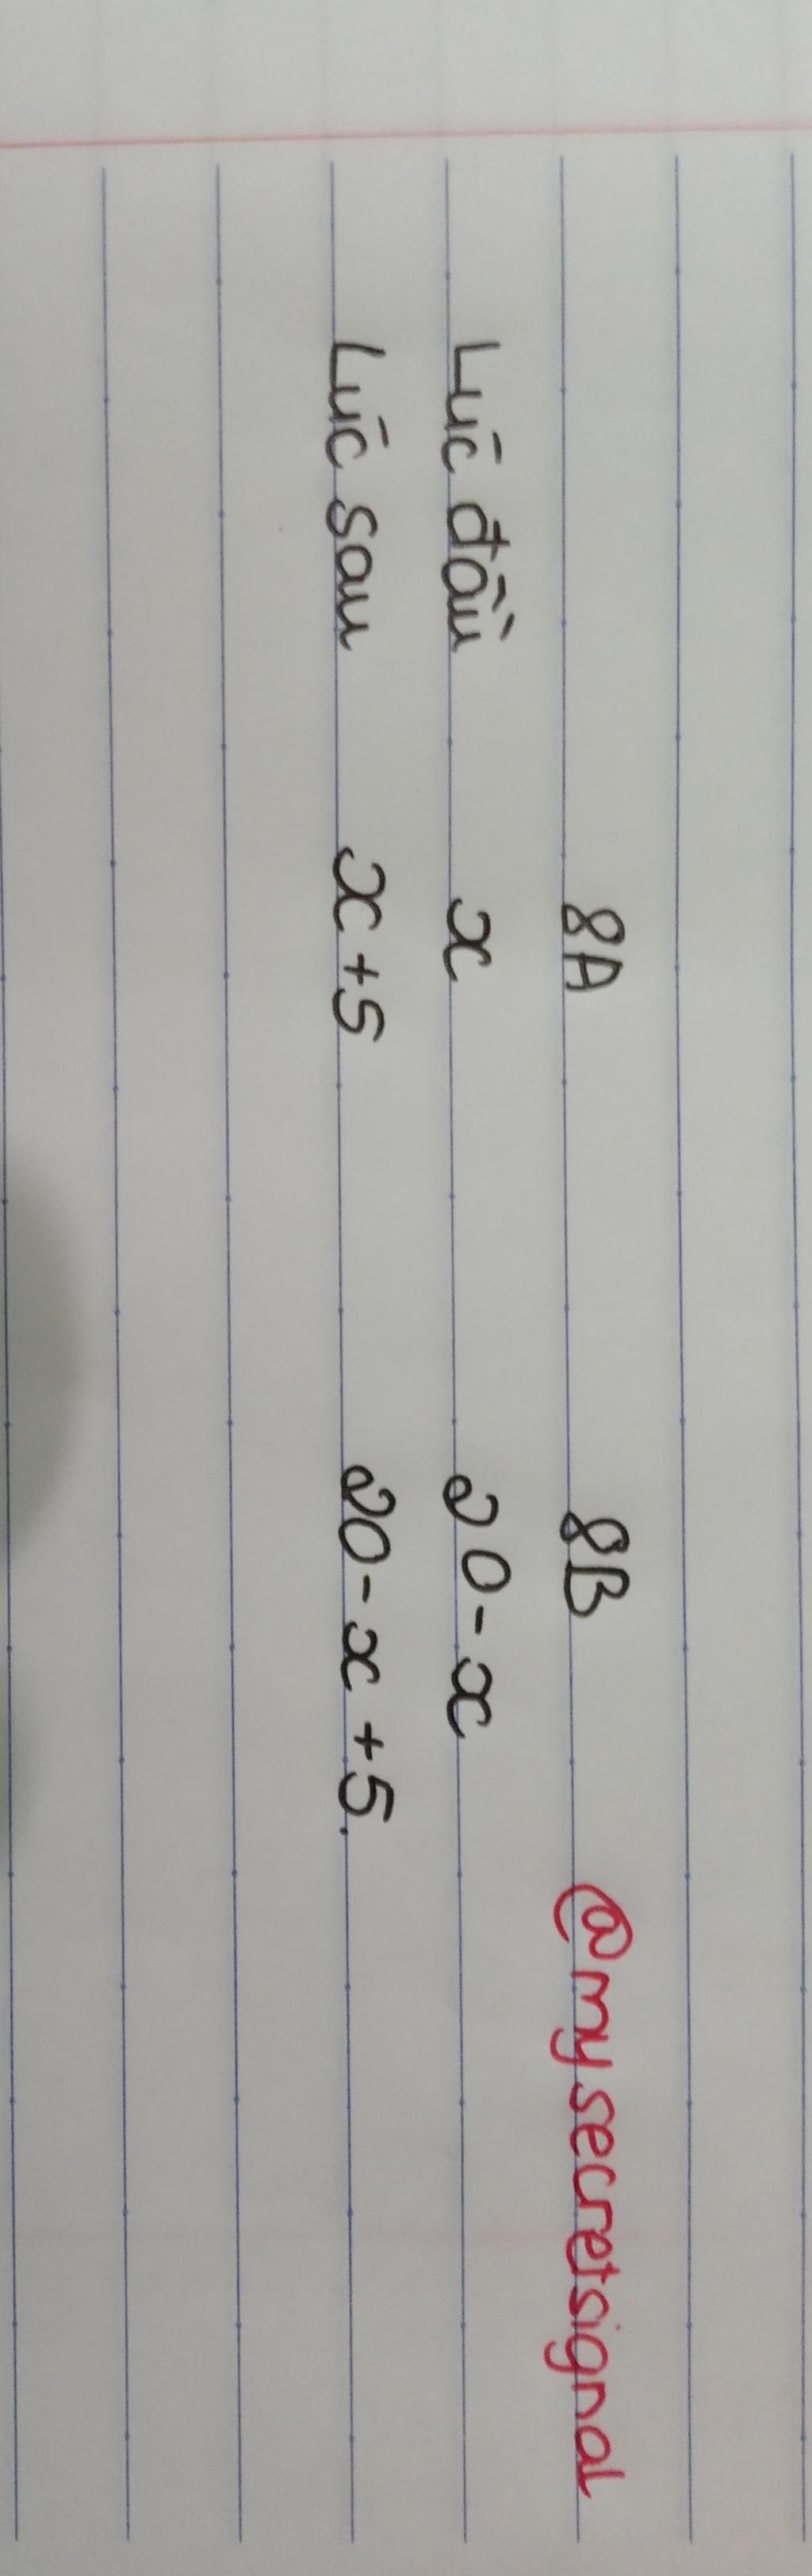 8A 8B @mysecretsignal
Lúc đầu x 20-x
Lúc sau x+5 20-x+5.